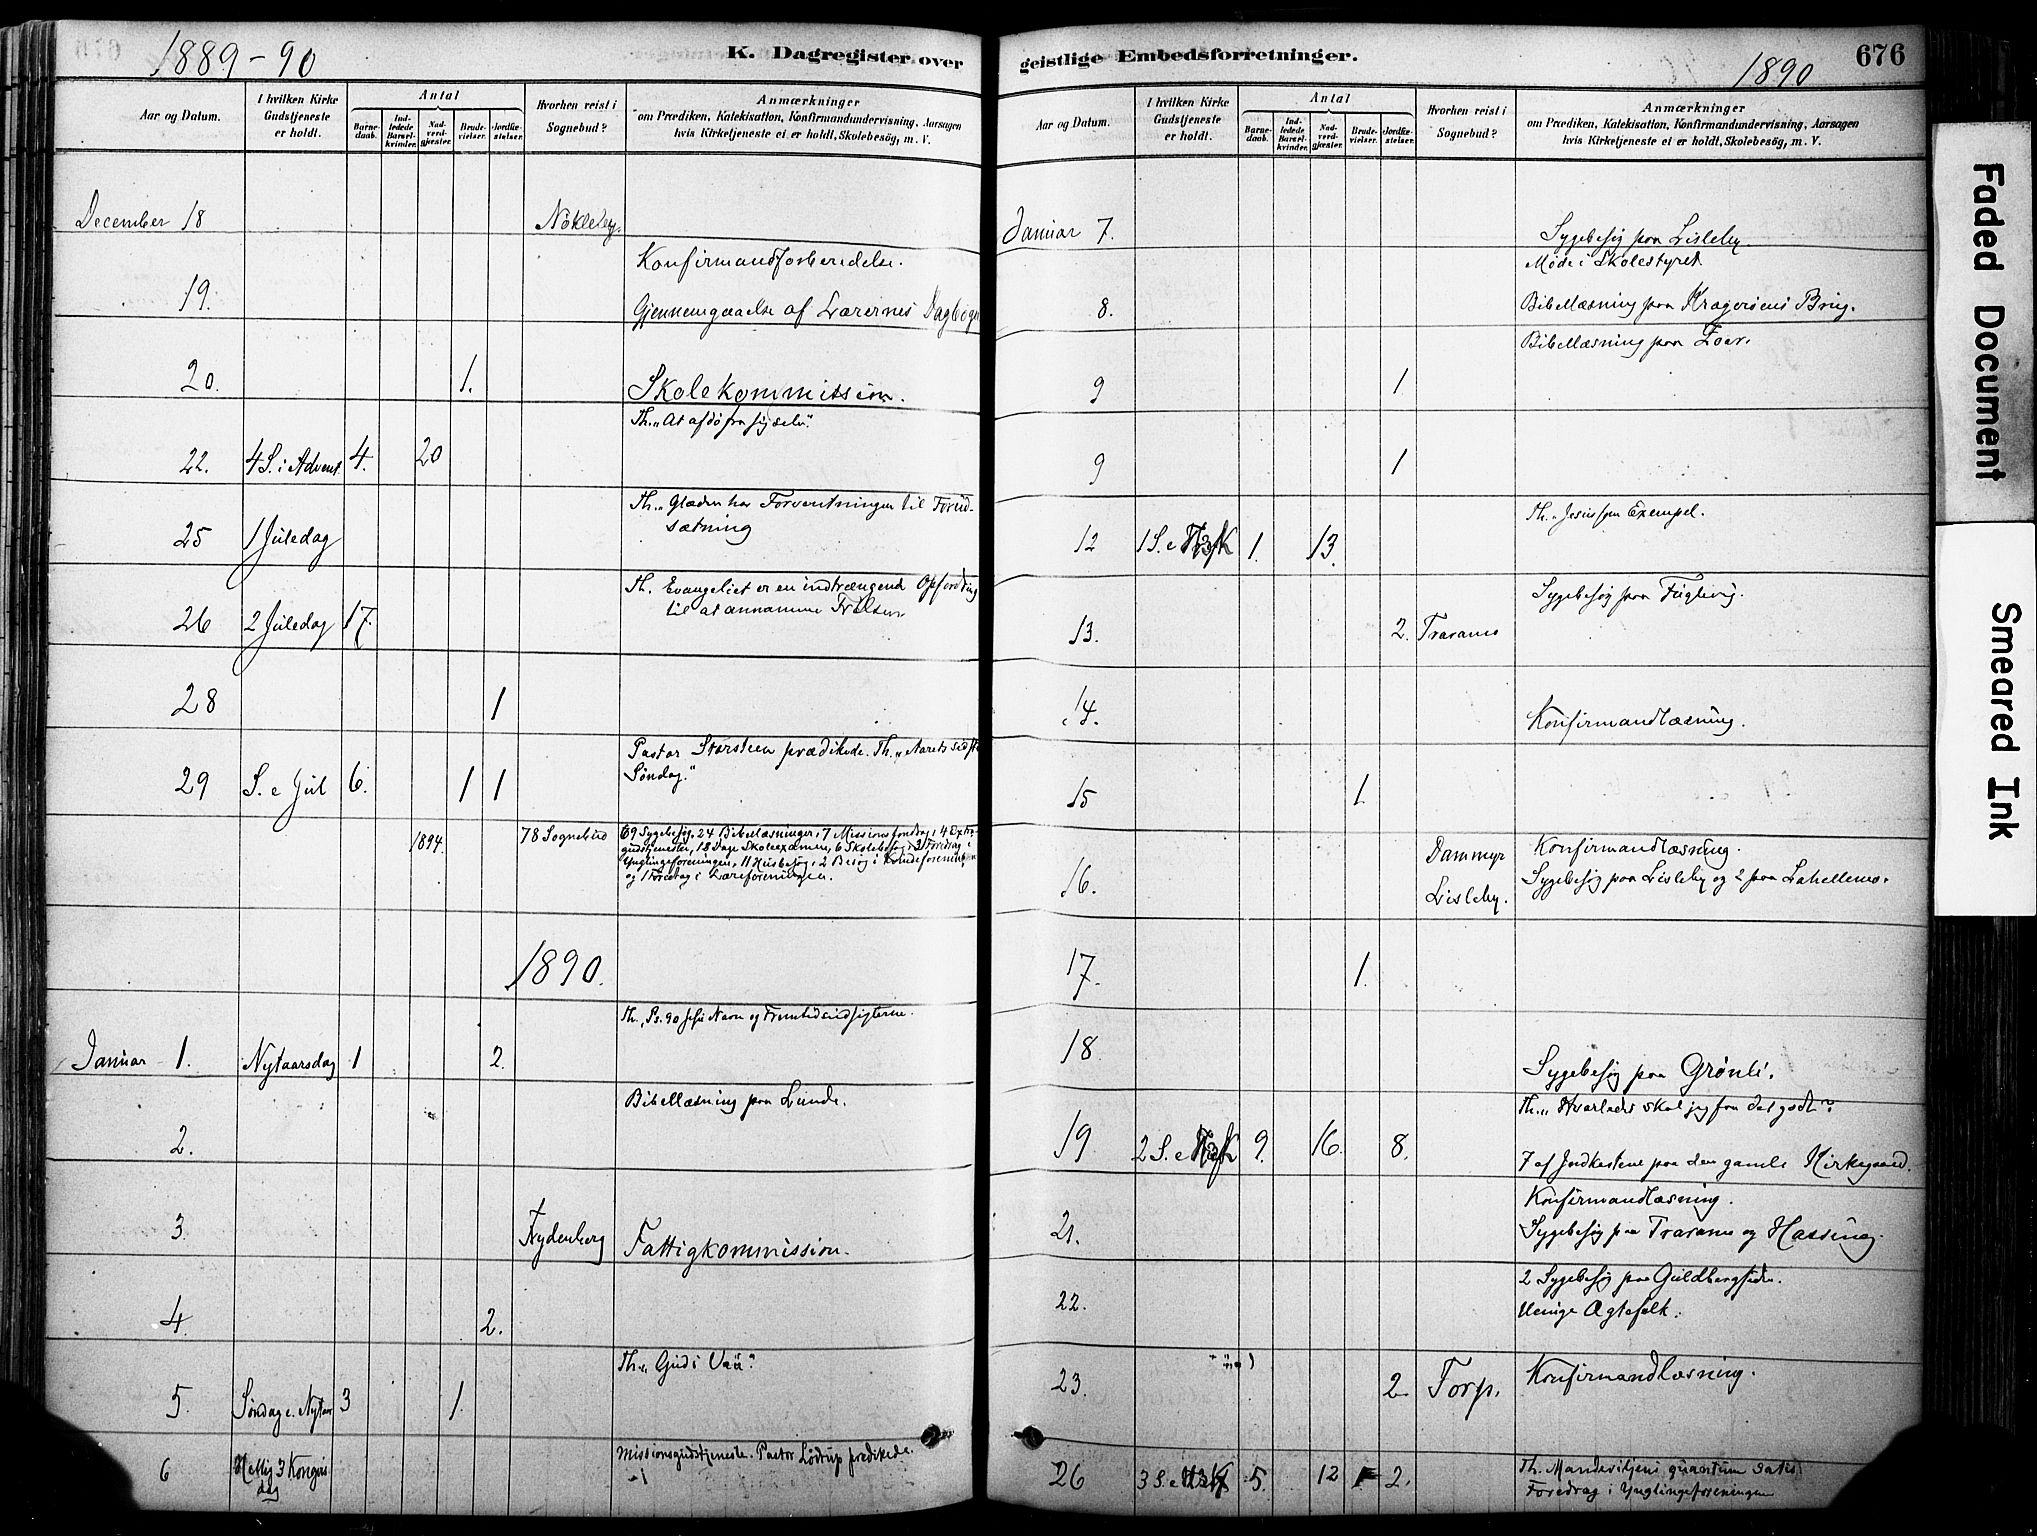 1889-90
K. Dagregister over
Aar og Datum.
I hvilken Kirke Gudstjeneste er holdt.
Antal
Barnedaab.
Indledede Barselkvinder.
Nadverdgjæster.
Brudevielser.
Jordfæstelser.
Hvorhen reist i Sognebud?
Anmærkninger
om Prædiken, Katekisation, Konfirmandundervisning, Aarsagen
hvis Kirketjeneste ei er holdt, Skolebesøg, m. V.
December 18 Nökleby.
Konfirmandforberedelse.
19. Gjennemgaaelse af Lærernes Dagbøger
20. 1. Skolekommission.
Th. „At afdø fra sig selv.“
22. 4 S. i Advent. 4. 20
Th. „Glæden har Forventningen til Forud-
sætning
25 1 Juledag
Th. Evangeliet er en indtrængende Opfordring
til at annamme Frelsen
26 2 Juledag 17.
28 1
Pastor Storsteen prædikede. Th. „Aarets sidste
Söndag.“
29 S. e Jul 6. 1 1
1894. 78 Sognebud 69 Sygebesög, 24 Bibellæsninger, 7 Missionsforedrag, 4 Extra-
gudstjenester, 18 Dage Skoleexamen, 6 Skolebesög, 3 Foredrag i
Ynglingeforeningen, 11 Husbesög, 2 Besög i Kvindeforeningen
og 1 Foredrag i Læreforeningen.
1890.
Th. „Ps. 90 Jesu Navn og Fremtidsudsigterne.
Januar 1. Nytaarsdag 1 2.
Bibellæsning paa Lunde.
2.
3. Nydenberg Fattigkommission.
4. 2.
Th. „Gud i Vaa“.
5. Søndag e. Nytaar 3 1.
Missionsgudstjeneste. Pastor Lödrup prædikede.
6 Hellig 3 Kongers
dag
geistlige Embedsforretninger.
1890
676
Aar og Datum.
I hvilken Kirke Gudstjeneste er holdt.
Antal
Barnedaab.
Indledede Barselkvinder.
Nadverdgjæster.
Brudevielser.
Jordfæstelser.
Hvorhen reist i Sognebud?
Anmærkninger
om Prædiken, Katekisation, Konfirmandundervisning, Aarsagen
hvis Kirketjeneste ei er holdt, Skolebesøg, m. V.
Januar 7. Sygebesög paa Lisleby.
Møde i Skolestyret
8. Bibellæsning paa Kragerøens Brug.
Bibellæsning paa Zoar.
9 1
9 1
Th. „Jesus som Exempel.
12 1 S. e H3K 1. 13.
Sygebesög paa Fuglevig.
13. 2. Traramo
14. Konfirmandlæsning.
15 1.
16. Dammyr Konfirmandlæsning.
Lisleby. Sygebesög paa Lisleby og 2 paa Lahellemo.
17. 1.
18 Sygebesög paa Grønli.
Th. „Hvorledes skal jeg faa det godt“?
19 2 S. e H3K 9. 16. 8.
7 af Jordfæstene paa den gamle Kirkegaard.
Konfirmandlæsning.
21. Sygebesög paa Traramo og Hassing.
2 Sygebesög paa Guldbergsiden.
22. Uenige Ægtefolk.
23. 2 Torp. Konfirmandlæsning.
26 3 S. e H3K 5. 12 2. Th. Mandeviljens quantum satis
Foredrag i Ynglingeforeningen
Faded Document
Smeared Ink